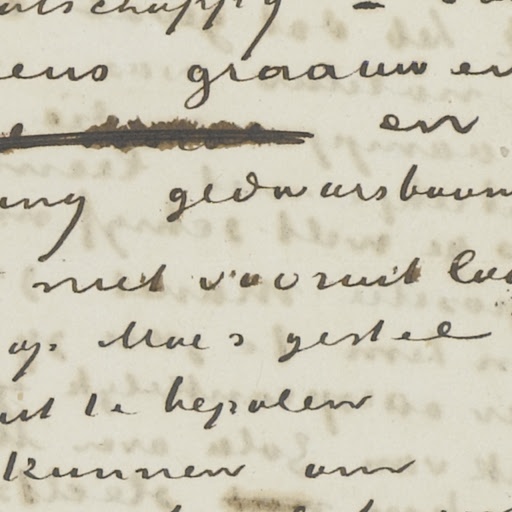 atschappy = 
ens graauw en
en
ing gedwarsboom
niet vooruit 
op Mac's gestel
uit te bepalen
kunnen om